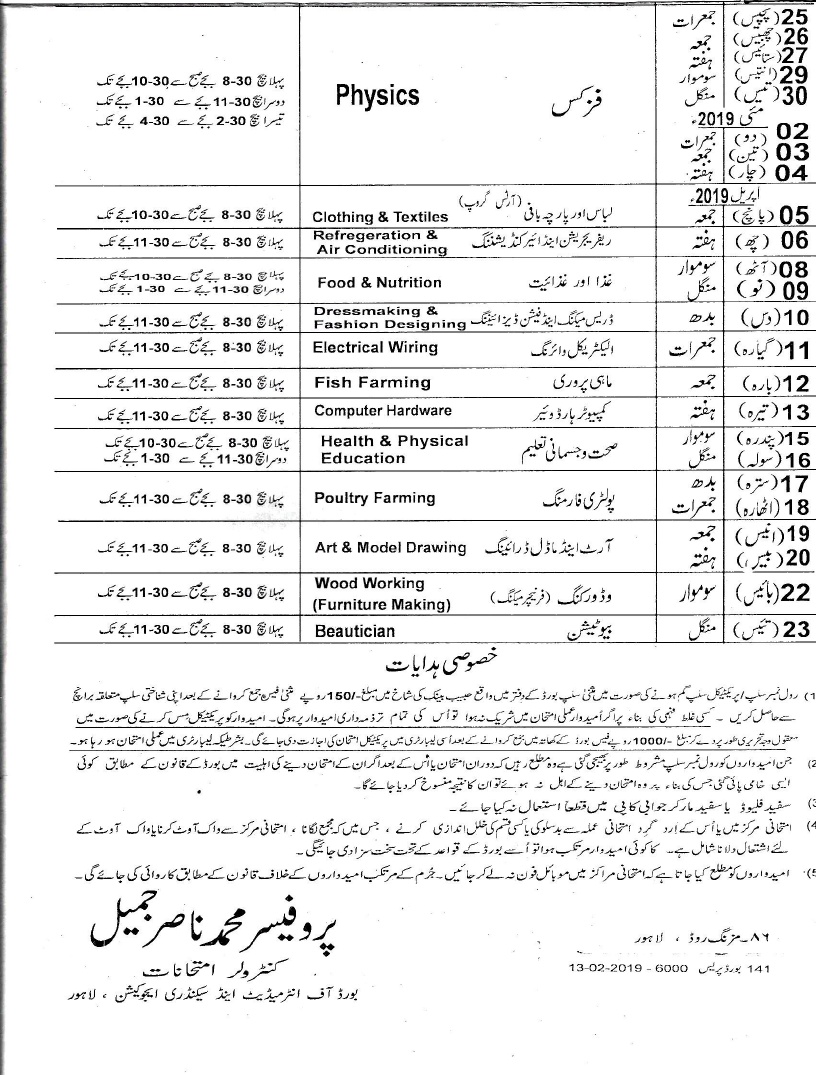 25 (پچیس) جمعرات
26 (چھبیس) جمعہ
27 (ستائیس) ہفتہ
29 (انتیس) سوموار
30 (تیس) منگل
مئی 2019ء
02 (دو) جمعرات
03 (تین) جمعہ
04 (چار) ہفتہ
فزکس Physics
پہلا بیچ 8-30 بجے صبح سے 10-30 بجے تک
دوسرا بیچ 11-30 بجے سے 1-30 بجے تک
تیسرا بیچ 2-30 بجے سے 4-30 بجے تک
اپریل 2019ء
05 (پانچ) جمعہ لباس اور پارچہ بافی (آرٹس گروپ) Clothing & Textiles پہلا بیچ 8-30 بجے صبح سے 10-30 بجے تک
06 (چھ) ہفتہ ریفریجریشن اینڈ ائیر کنڈیشننگ Refregeration & Air Conditioning پہلا بیچ 8-30 بجے صبح سے 11-30 بجے تک
08 (آٹھ) سوموار
09 (نو) منگل
غذا اور غذائیت Food & Nutrition
پہلا بیچ 8-30 بجے صبح سے 10-30 بجے تک
دوسرا بیچ 11-30 بجے سے 1-30 بجے تک
10 (دس) بدھ ڈریس میکنگ اینڈ فیشن ڈیزائیننگ Dressmaking & Fashion Designing پہلا بیچ 8-30 بجے صبح سے 11-30 بجے تک
11 (گیارہ) جمعرات الیکٹریکل وائرنگ Electrical Wiring پہلا بیچ 8-30 بجے صبح سے 11-30 بجے تک
12 (بارہ) جمعہ ماہی پروری Fish Farming پہلا بیچ 8-30 بجے صبح سے 11-30 بجے تک
13 (تیرہ) ہفتہ کمپیوٹر ہارڈ وئیر Computer Hardware پہلا بیچ 8-30 بجے صبح سے 11-30 بجے تک
15 (پندرہ) سوموار
16 (سولہ) منگل
صحت و جسمانی تعلیم Health & Physical Education
پہلا بیچ 8-30 بجے صبح سے 10-30 بجے تک
دوسرا بیچ 11-30 بجے سے 1-30 بجے تک
17 (سترہ) بدھ
18 (اٹھارہ) جمعرات
پولٹری فارمنگ Poultry Farming پہلا بیچ 8-30 بجے صبح سے 11-30 بجے تک
19 (انیس) جمعہ
20 (بیس) ہفتہ
آرٹ اینڈ ماڈل ڈرائینگ Art & Model Drawing پہلا بیچ 8-30 بجے صبح سے 11-30 بجے تک
22 (بائیس) سوموار وڈ ورکنگ (فرنیچر میکنگ) Wood Working (Furniture Making) پہلا بیچ 8-30 بجے صبح سے 11-30 بجے تک
23 (تئیس) منگل بیوٹیشن Beautician پہلا بیچ 8-30 بجے صبح سے 11-30 بجے تک
خصوصی ہدایات
(1 رول نمبر سلپ / پریکٹیکل سلپ گم ہونے کی صورت میں مثنیٰ سلپ بورڈ کے دفتر میں واقع حبیب بینک کی شاخ میں مبلغ -/150 روپے مثنیٰ فیس جمع کروانے کے بعد اپنی شناختی سلپ متعلقہ برانچ
سے حاصل کریں ۔ کسی غلط فہمی کی بناء پر اگر امیدوار عملی امتحان میں شریک نہ ہوا تو اُس کی تمام تر ذمہ داری امیدوار پر ہوگی ۔ امیدوار کو پریکٹیکل مِس کرنے کی صورت میں
معقول وجہ تحریری طور پر دے کر مبلغ -/1000 روپے فیس بورڈ کے کھاتہ میں جمع کروانے کے بعد اُسی لیبارٹری میں پریکٹیکل امتحان کی اجازت دی جائے گی۔ بشرطیکہ لیبارٹری میں عملی امتحان ہو رہا ہو۔
(2 جن امیدواروں کو رول نمبر سلپ مشروط طور پر بھیجی گئی ہے وہ مطلع رہیں کہ دوران امتحان یا اُس کے بعد اگر ان کے امتحان دینے کی اہلیت میں بورڈ کے قانون کے مطابق کوئی
ایسی خامی پائی گئی جس کی بناء پر وہ امتحان دینے کے اہل نہ ہوئے تو ان کا نتیجہ منسوخ کر دیا جائے گا۔
(3 سفید فلیوڈ یا سفید مارکر جوابی کاپی میں قطعاً استعمال نہ کیا جائے ۔
(4 امتحانی مرکز میں یا اُس کے اِرد گرد امتحانی عملہ سے بدسلوکی یا کسی قسم کی خلل اندازی کرنے ، جس میں کہ مجمع لگانا ، امتحانی مرکز سے واک آوٹ کرنا یا واک آوٹ کے
لئے اشتعال دلانا شامل ہے ۔ کا کوئی امیدوار مرتکب ہوا تو اُسے بورڈ کے قواعد کے تحت سخت سزا دی جائیگی ۔
(5 امیدواروں کو مطلع کیا جاتا ہے کہ امتحانی مراکز میں موبائل فون نہ لے کر جائیں ۔ جُرم کے مرتکب امیدواروں کے خلاف قانون کے مطابق کاروائی کی جائے گی ۔
پروفیسر محمد ناصر جمیل
کنٹرولر امتحانات
بورڈ آف انٹرمیڈیٹ اینڈ سیکنڈری ایجوکیشن ، لاہور
۸۶۔مزنگ روڈ ، لاہور
141 بورڈ پریس 6000 - 13-02-2019